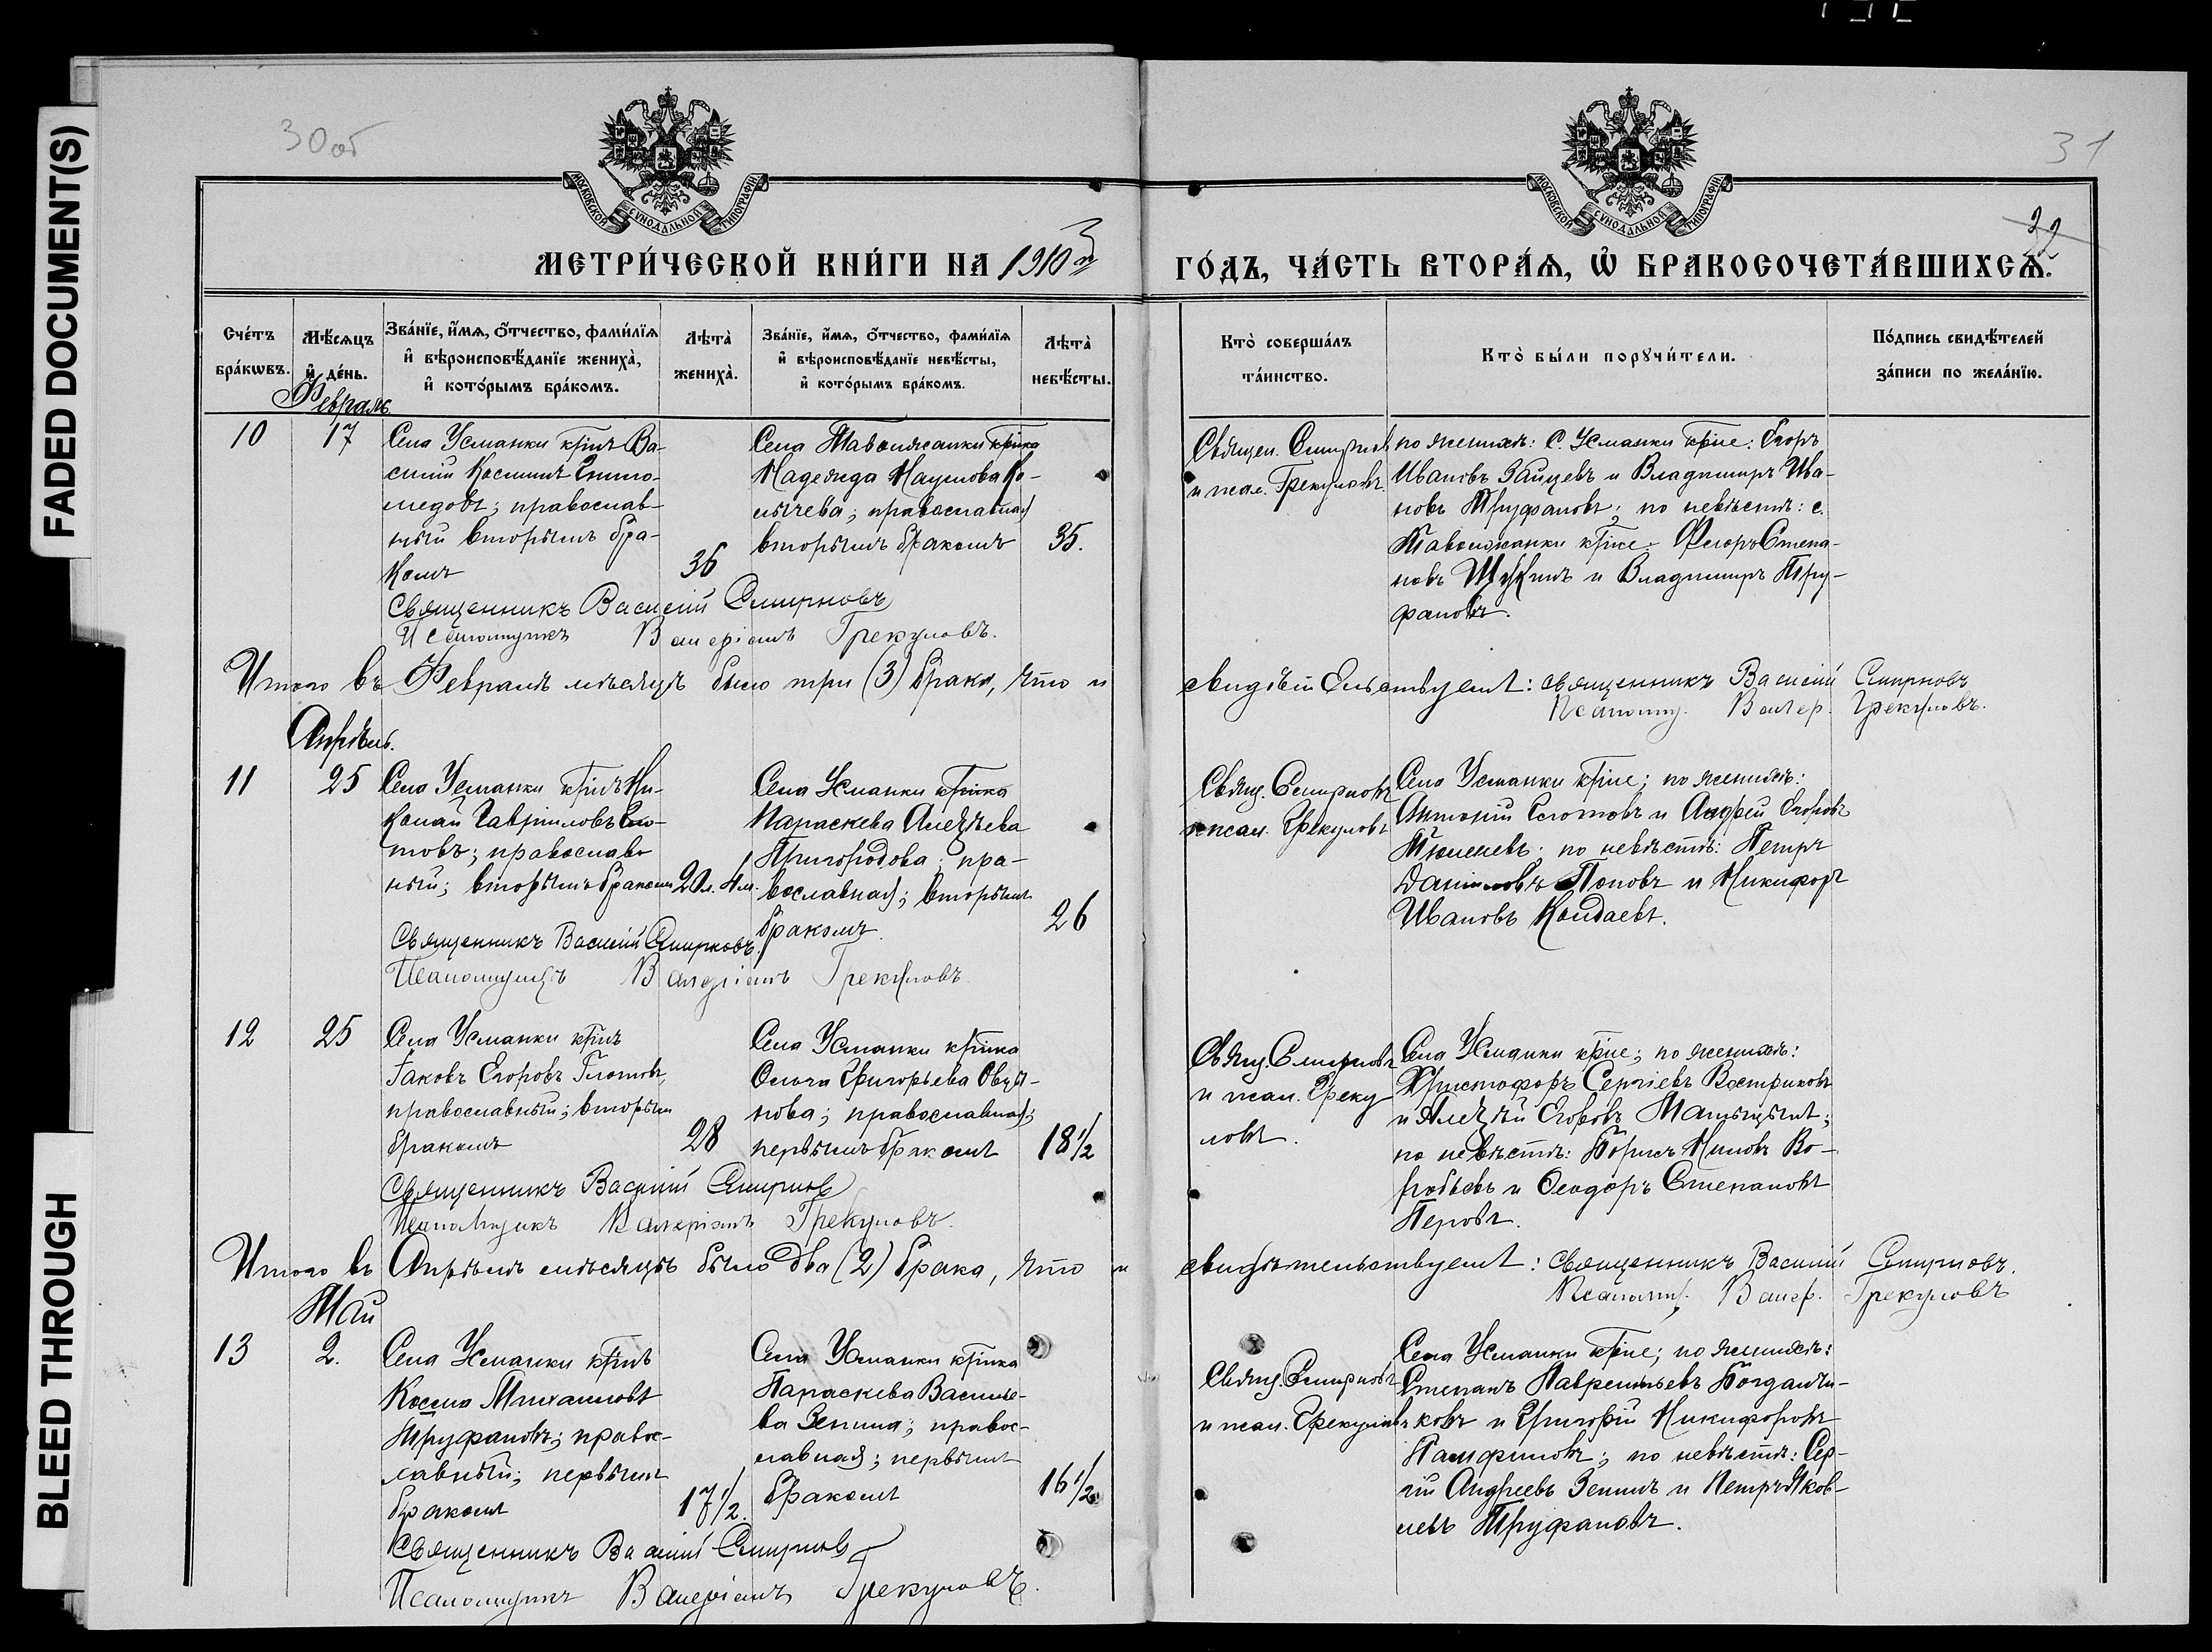 FADED DOCUMENT(S)
BLEED THROUGH
30 об
31
22
МОСКОВСКОЙ СУНОДАЛЬНОЙ ТИПОГРАФІИ
МОСКОВСКОЙ СУНОДАЛЬНОЙ ТИПОГРАФІИ
МЕТРИ́ЧЕСКОЙ КНИ́ГИ НА 1910
ГО́ДЪ, ЧА́СТЬ ВТОРА́Ѧ, Ѡ҆ БРАКОСОЧЕТА́ВШИХСѦ.
Сче́тъ бра́кѡвъ.
Мѣ́сѧцъ и҆ де́нь.
Зва́нїе, и҆́мѧ, ѻ҆́тчество, фами́лїѧ и҆ вѣроисповѣ́данїе жениха̀, и҆ кото́рымъ бра́комъ.
Лѣта̀ жениха̀.
Зва́нїе, и҆́мѧ, ѻ҆́тчество, фами́лїѧ и҆ вѣроисповѣ́данїе невѣ́сты, и҆ кото́рымъ бра́комъ.
Лѣта̀ невѣ́сты.
Кто̀ соверша́лъ та́инство.
Кто̀ бы́ли порꙋчи́тели.
По́дпись свидѣ́телей за́писи по жела́нїю.
Февраль
10
17
Села Усманки кр̃инъ Ва-
силій Косминъ
православ-
ный вторымъ бра-
комъ
36
Села Таволжанки кр̃нка
Надежда Наумова Ко-
лычева; православная
вторымъ бракомъ
35.
Священ. Смирновъ
и псал. Грекуловъ.
по женихѣ: с. Усманки кр̃не: Егоръ
Ивановъ Зайцевъ и Владимиръ Ива-
новъ Труфановъ; по невѣстѣ: с.
Таволжанки кр̃не: Ѳеоръ Степа-
новъ Щукинъ и Владимиръ Тру-
фановъ.
Священникъ Василій Смирновъ
Псаломщикъ Валеріанъ Грекуловъ.
Итого въ Февралѣ мѣсяцѣ было три (3) брака, что и
свидѣтельствуемъ: священникъ Василій Смирновъ
Псаломщ. Валер. Грекуловъ.
Апрѣль.
11
25
Села Усманки кр̃инъ Ни-
колай Гавріиловъ Гло-
товъ; православ-
ный; вторымъ бракомъ
20 л. 4 м.
Села Усманки кр̃нка
Параскева Алеѯѣева
Пригородова; пра-
вославная; вторымъ
бракомъ
26
Свящ. Смирновъ
и псал. Грекуловъ
Села Усманки кр̃не; по женихѣ:
Антоній Глотовъ и Андрей Егоровъ
Тюленевъ; по невѣстѣ: Петръ
Даниловъ Поповъ и Никифоръ
Ивановъ Колдаевъ.
Священникъ Василій Смирновъ.
Псаломщикъ Валеріанъ Грекуловъ
12
25
Села Усманки кр̃инъ
Іаковъ Егоровъ Глотовъ,
православный; вторымъ
бракомъ
28
Села Усманки кр̃нка
Ольга Григорьева Овчин-
нова; православная;
первымъ бракомъ
18½
Свящ. Смирновъ
и псал. Греку-
ловъ.
Села Усманки кр̃не; по женихѣ:
Христофоръ Сергіевъ Востриковъ
и Алеѯѣй Егоровъ Мальцынъ;
по невѣстѣ: Борисъ Ниловъ Во-
робьевъ и Ѳеодоръ Степановъ
Перовъ.
Священникъ Василій Смирновъ
Псаломщикъ Валеріанъ Грекуловъ.
Итого въ Апрѣлѣ мѣсяцѣ было два (2) брака, что и
свидѣтельствуемъ: священникъ Василій Смирновъ.
Псаломщ. Валер. Грекуловъ
Май
13
2.
Села Усманки кр̃инъ
Косма Михаиловъ
Труфановъ; правос-
лавный; первымъ
бракомъ
17½.
Села Усманки кр̃нка
Параскева Василье-
ва Зенина; правос-
лавная; первымъ
бракомъ
16½
Свящ. Смирновъ
и псал. Грекуловъ
Села Усманки кр̃не; по женихѣ:
Степанъ Лаврентьевъ Богданчи-
ковъ и Григорій Никифоровъ
Памфиловъ; по невѣстѣ: Сер-
гій Андреевъ Зенинъ и Петръ Яков-
левъ Труфановъ.
Священникъ Василій Смирновъ
Псаломщикъ Валеріанъ Грекуловъ.